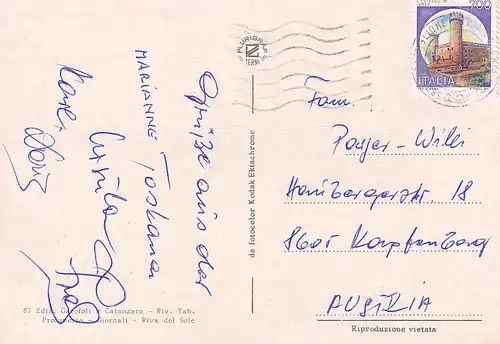 Grüße aus der
Toskana
MARIANNE
Ursula
Fam.
Poyer-Willi
Hamburgerstr. 18
8605 Kapfenberg
AUSTRIA
700
ITALIA
PLURIGRAF
TERNI
da fotocolor Kodak Ektachrome
87 Ediz. Garofoli e Catanzaro - Riv. Tab.
Profumeria - Giornali - Riva del Sole
Riproduzione vietata